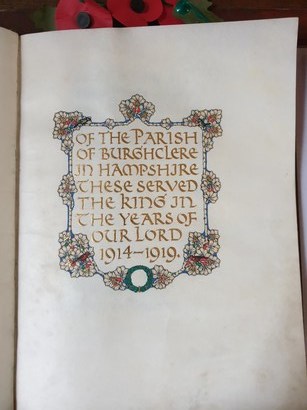 OF THE PARISH
OF BURGHCLERE
IN HAMPSHIRE
THESE SERVED
THE KING IN
THE YEARS OF
OUR LORD
1914-1919.